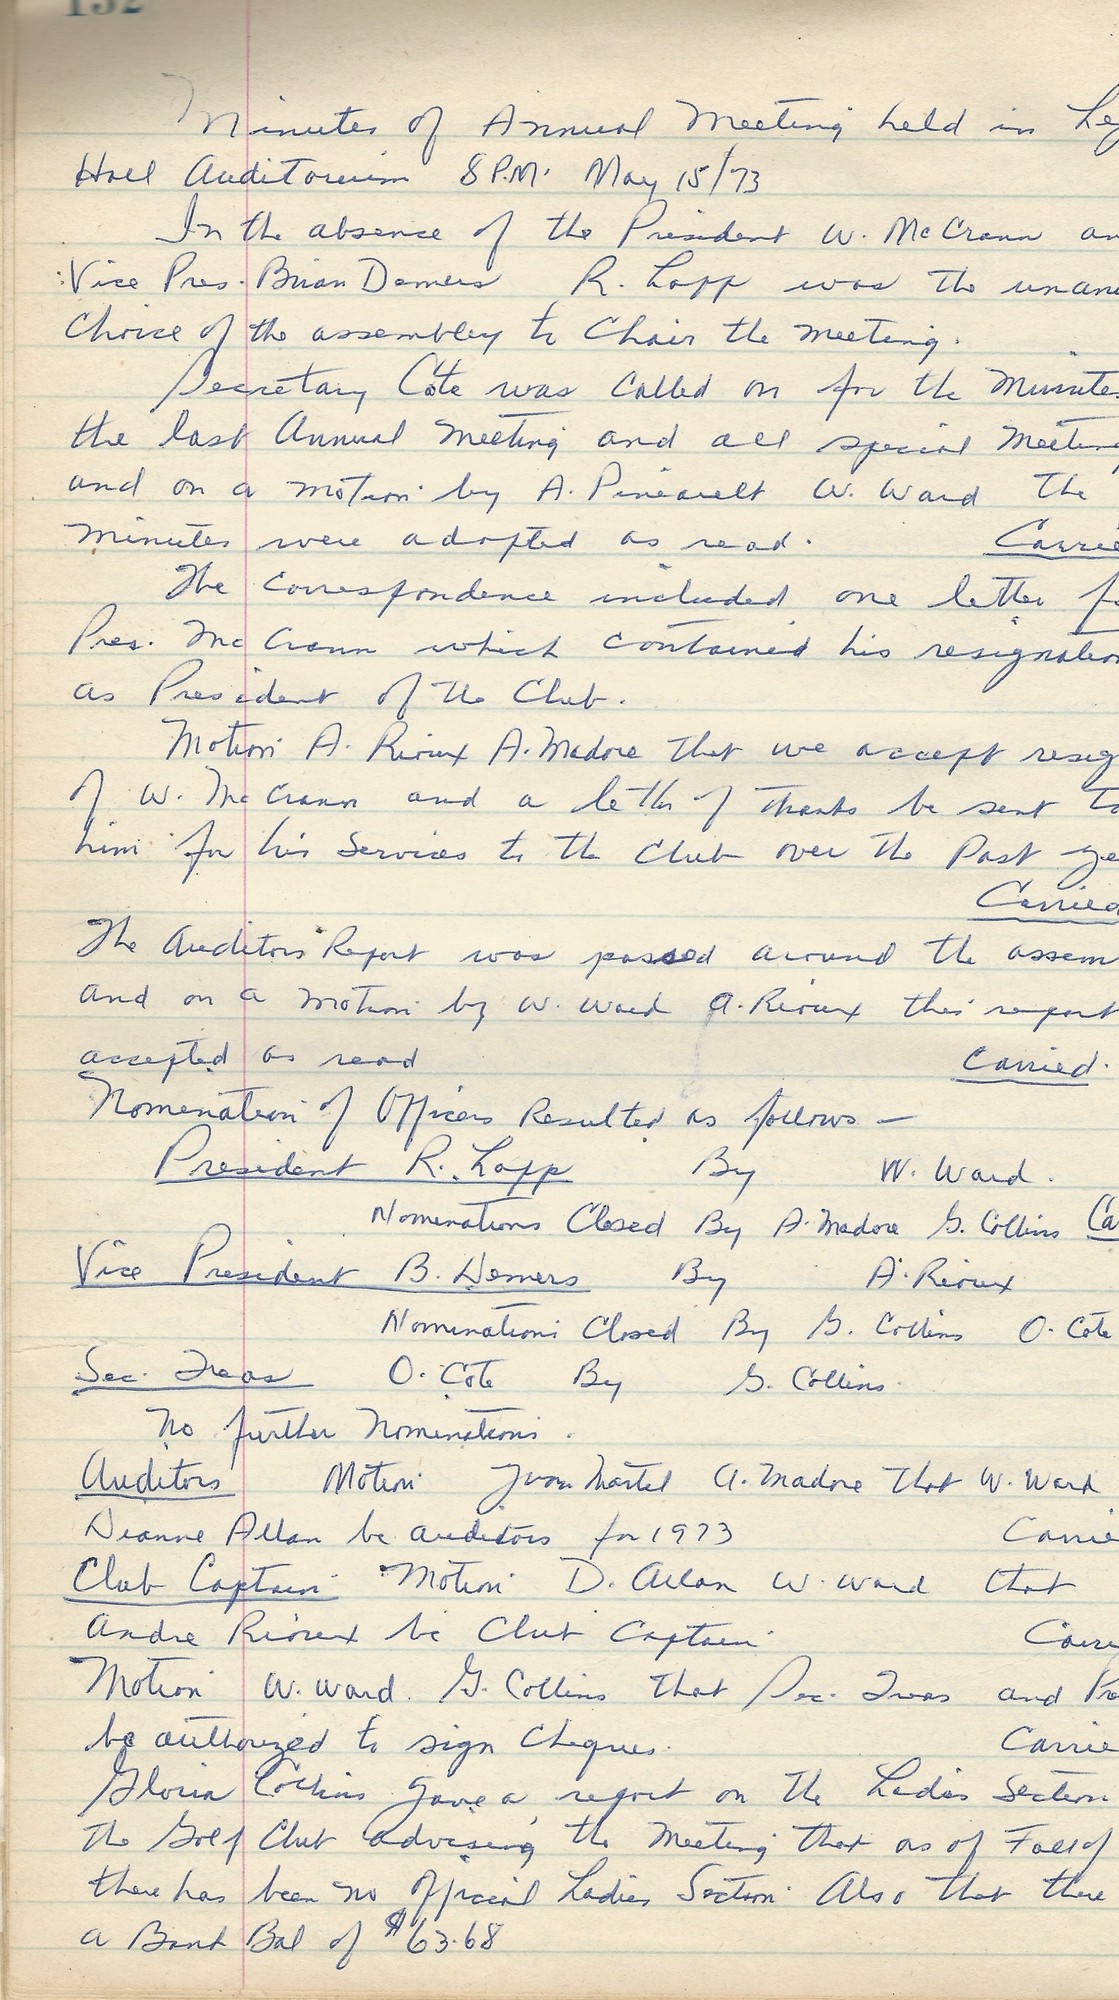 132
Minutes of Annual Meeting held in Leg
Hall Auditorium 8 P.M. May 15/73
In the absence of the President W. McCrann an
Vice Pres. Brian Demers R. Lapp was the unani
Choice of the assembley to Chair the meeting.
Secretary Côte was called on for the Minutes
the last Annual Meeting and all special Meeting
and on a motion by A. Pineault W. Ward the
minutes were adopted as read. Carrie
The correspondence included one letter f
Pres. McCrann which contained his resignation
as President of the Club.
Motion A. Rioux A. Madore that we accept resig
of W. McCrann and a letter of thanks be sent to
him for his services to the Club over the Past ye
Carried
The Auditors Report was passed around the assem
and on a motion by W. Ward A. Rioux this report
accepted as read Carried.
Nomenation of Officers Resulted as follows —
President R. Lapp By W. Ward.
Nomenations Closed By A. Madore G. Collins Ca
Vice President B. Demers By A. Rioux
Nominations Closed By G. Collins O. Cote
Sec. Treas O. Cote By G. Collins
No further Nomenations.
Auditors Motion Martel A. Madore that W. Ward
Dianne Allan be auditors for 1973 Carrie
Club Captain Motion D. Allan W. Ward that
Andre Rioux be Club Captain Carri
Motion W. Ward. G. Collins that Sec. Treas and Pre
be authorized to sign Cheques. Carrie
Gloria Collins gave a report on the Ladies Section
the Golf Club advising the Meeting that as of Fall of
there has been no Official Ladies Section. Also that there
a Bank Bal of $63.68